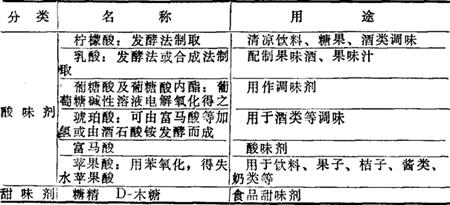 分类 名称 用途
酸味剂
柠檬酸：发酵法制取 清凉饮料、糖果、酒类调味
乳酸：发酵法或合成法制取 配制果味酒、果味汁
葡糖酸及葡糖酸内酯：葡萄糖碱性溶液电解氧化得之 用作调味剂
琥珀酸：可由富马酸等加氢或由酒石酸铵发酵而成 用于酒类等调味
富马酸 酸味剂
苹果酸：用苯氧化，得失水苹果酸 用于饮料、果子、桔子、酱类、奶类等
甜味剂 糖精 D-木糖 食品甜味剂